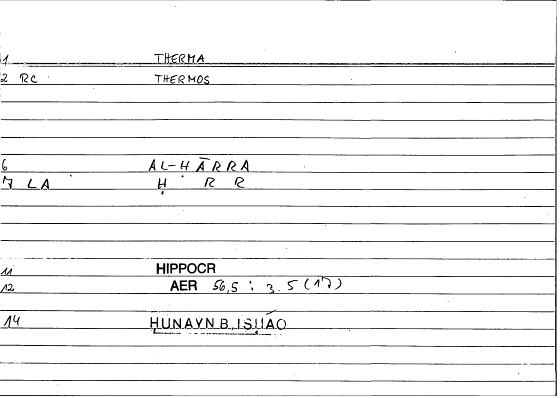 1 THERMA
2 RC THERMOS
6 AL-ḤĀRRA
7 LA Ḥ R R
11 HIPPOCR
12 AER 56,5 : 3.5 (17)
14 ḤUNAYN B. ISḤĀQ